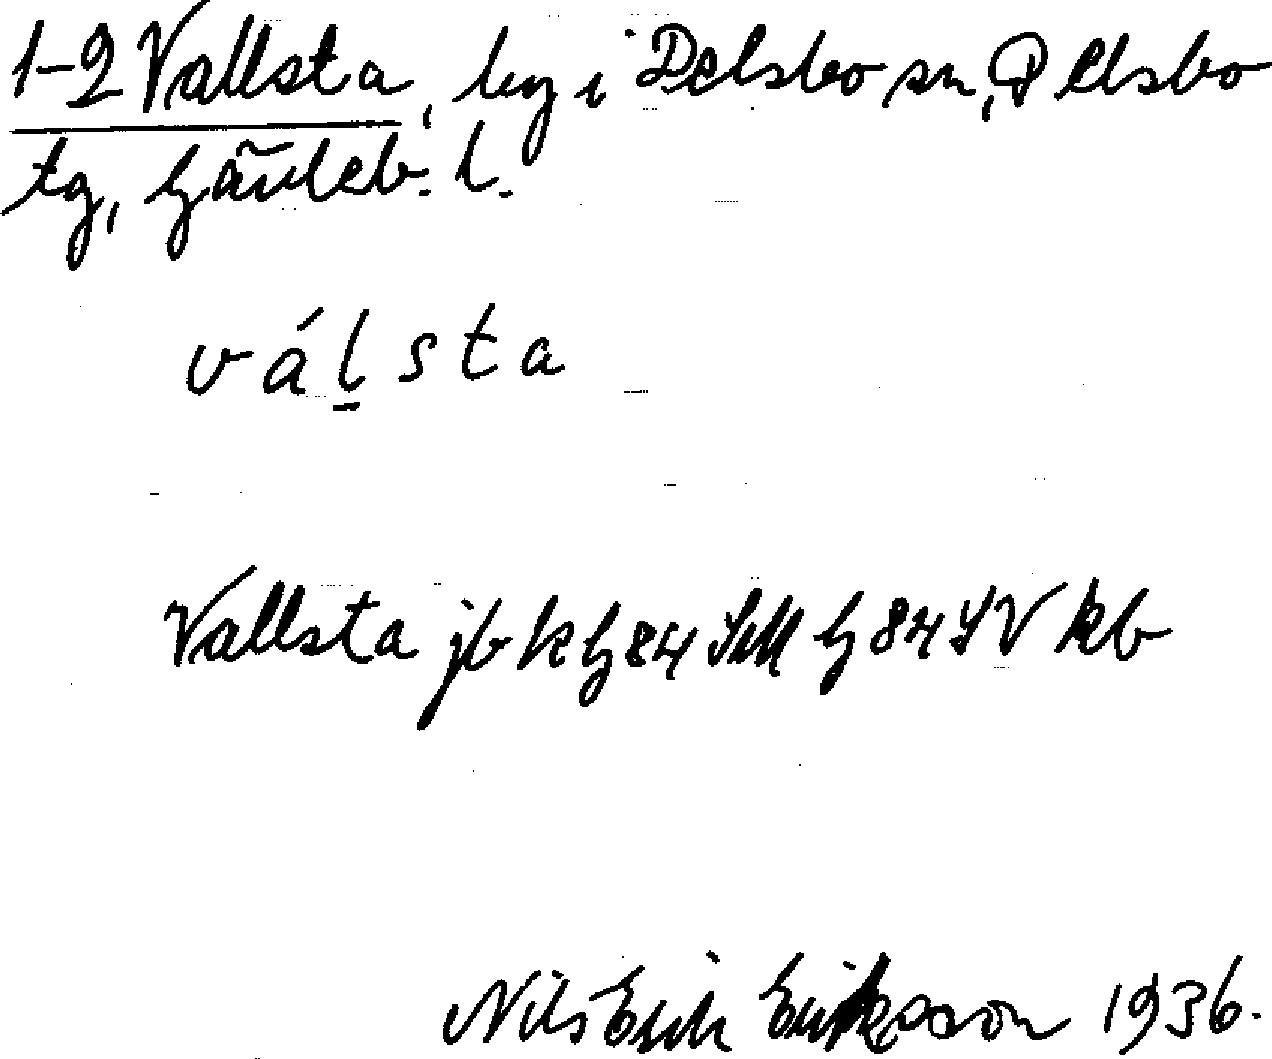 1-2 Vallsta, by i Delsbo sn, Delsbo
tg, Gävleb. l.
válsta
Vallsta jb k h84 h84 SV kb
Nils Erik Eriksson 1936.